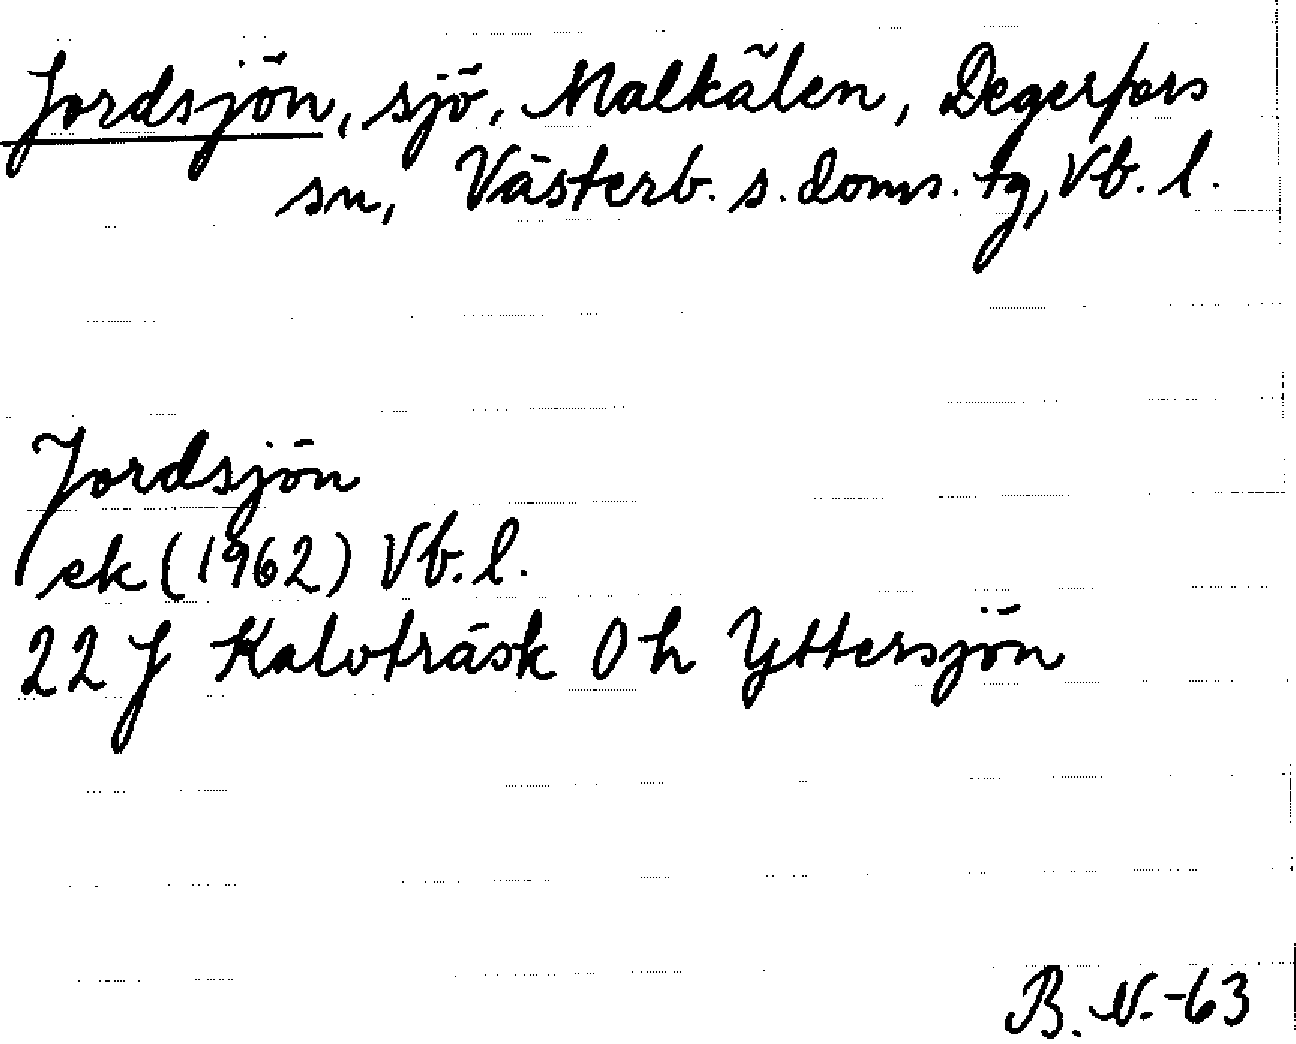 Jordsjön, sjö, Malkälen, Degerfors
sn, Västerb. s. doms. tg, Vb. l.
Jordsjön
ek (1962) Vb. l.
22 J Kalvträsk 0 h Yttersjön
B. N. -63